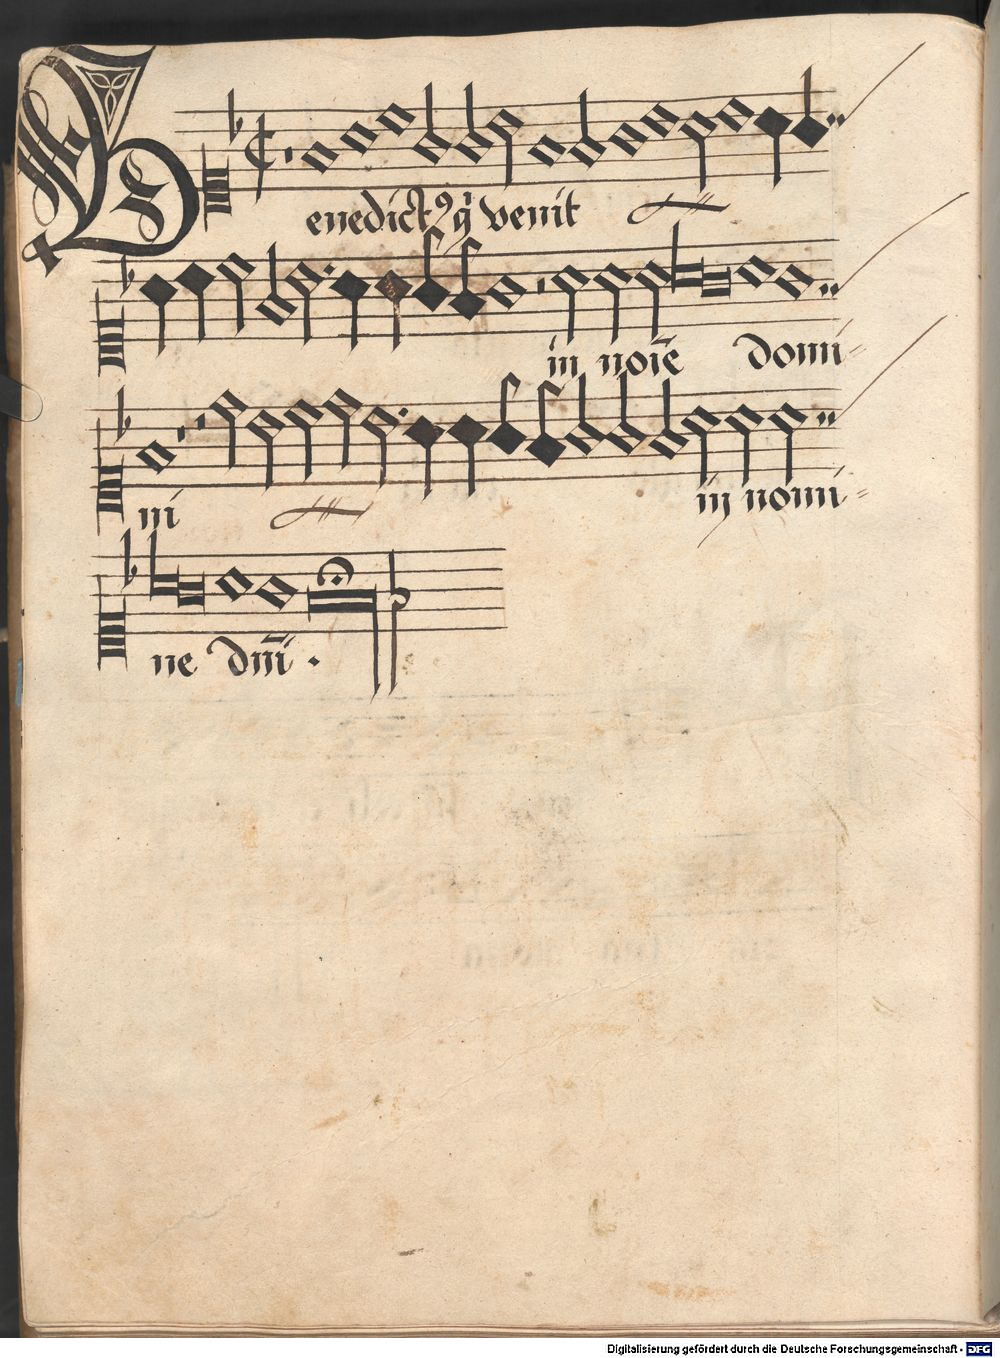 Benedictꝰ q̇ venit
in noīe domi⸗
ni in nomi⸗
ne dn̄i .
Digitalisierung gefördert durch die Deutsche Forschungsgemeinschaft - DFG